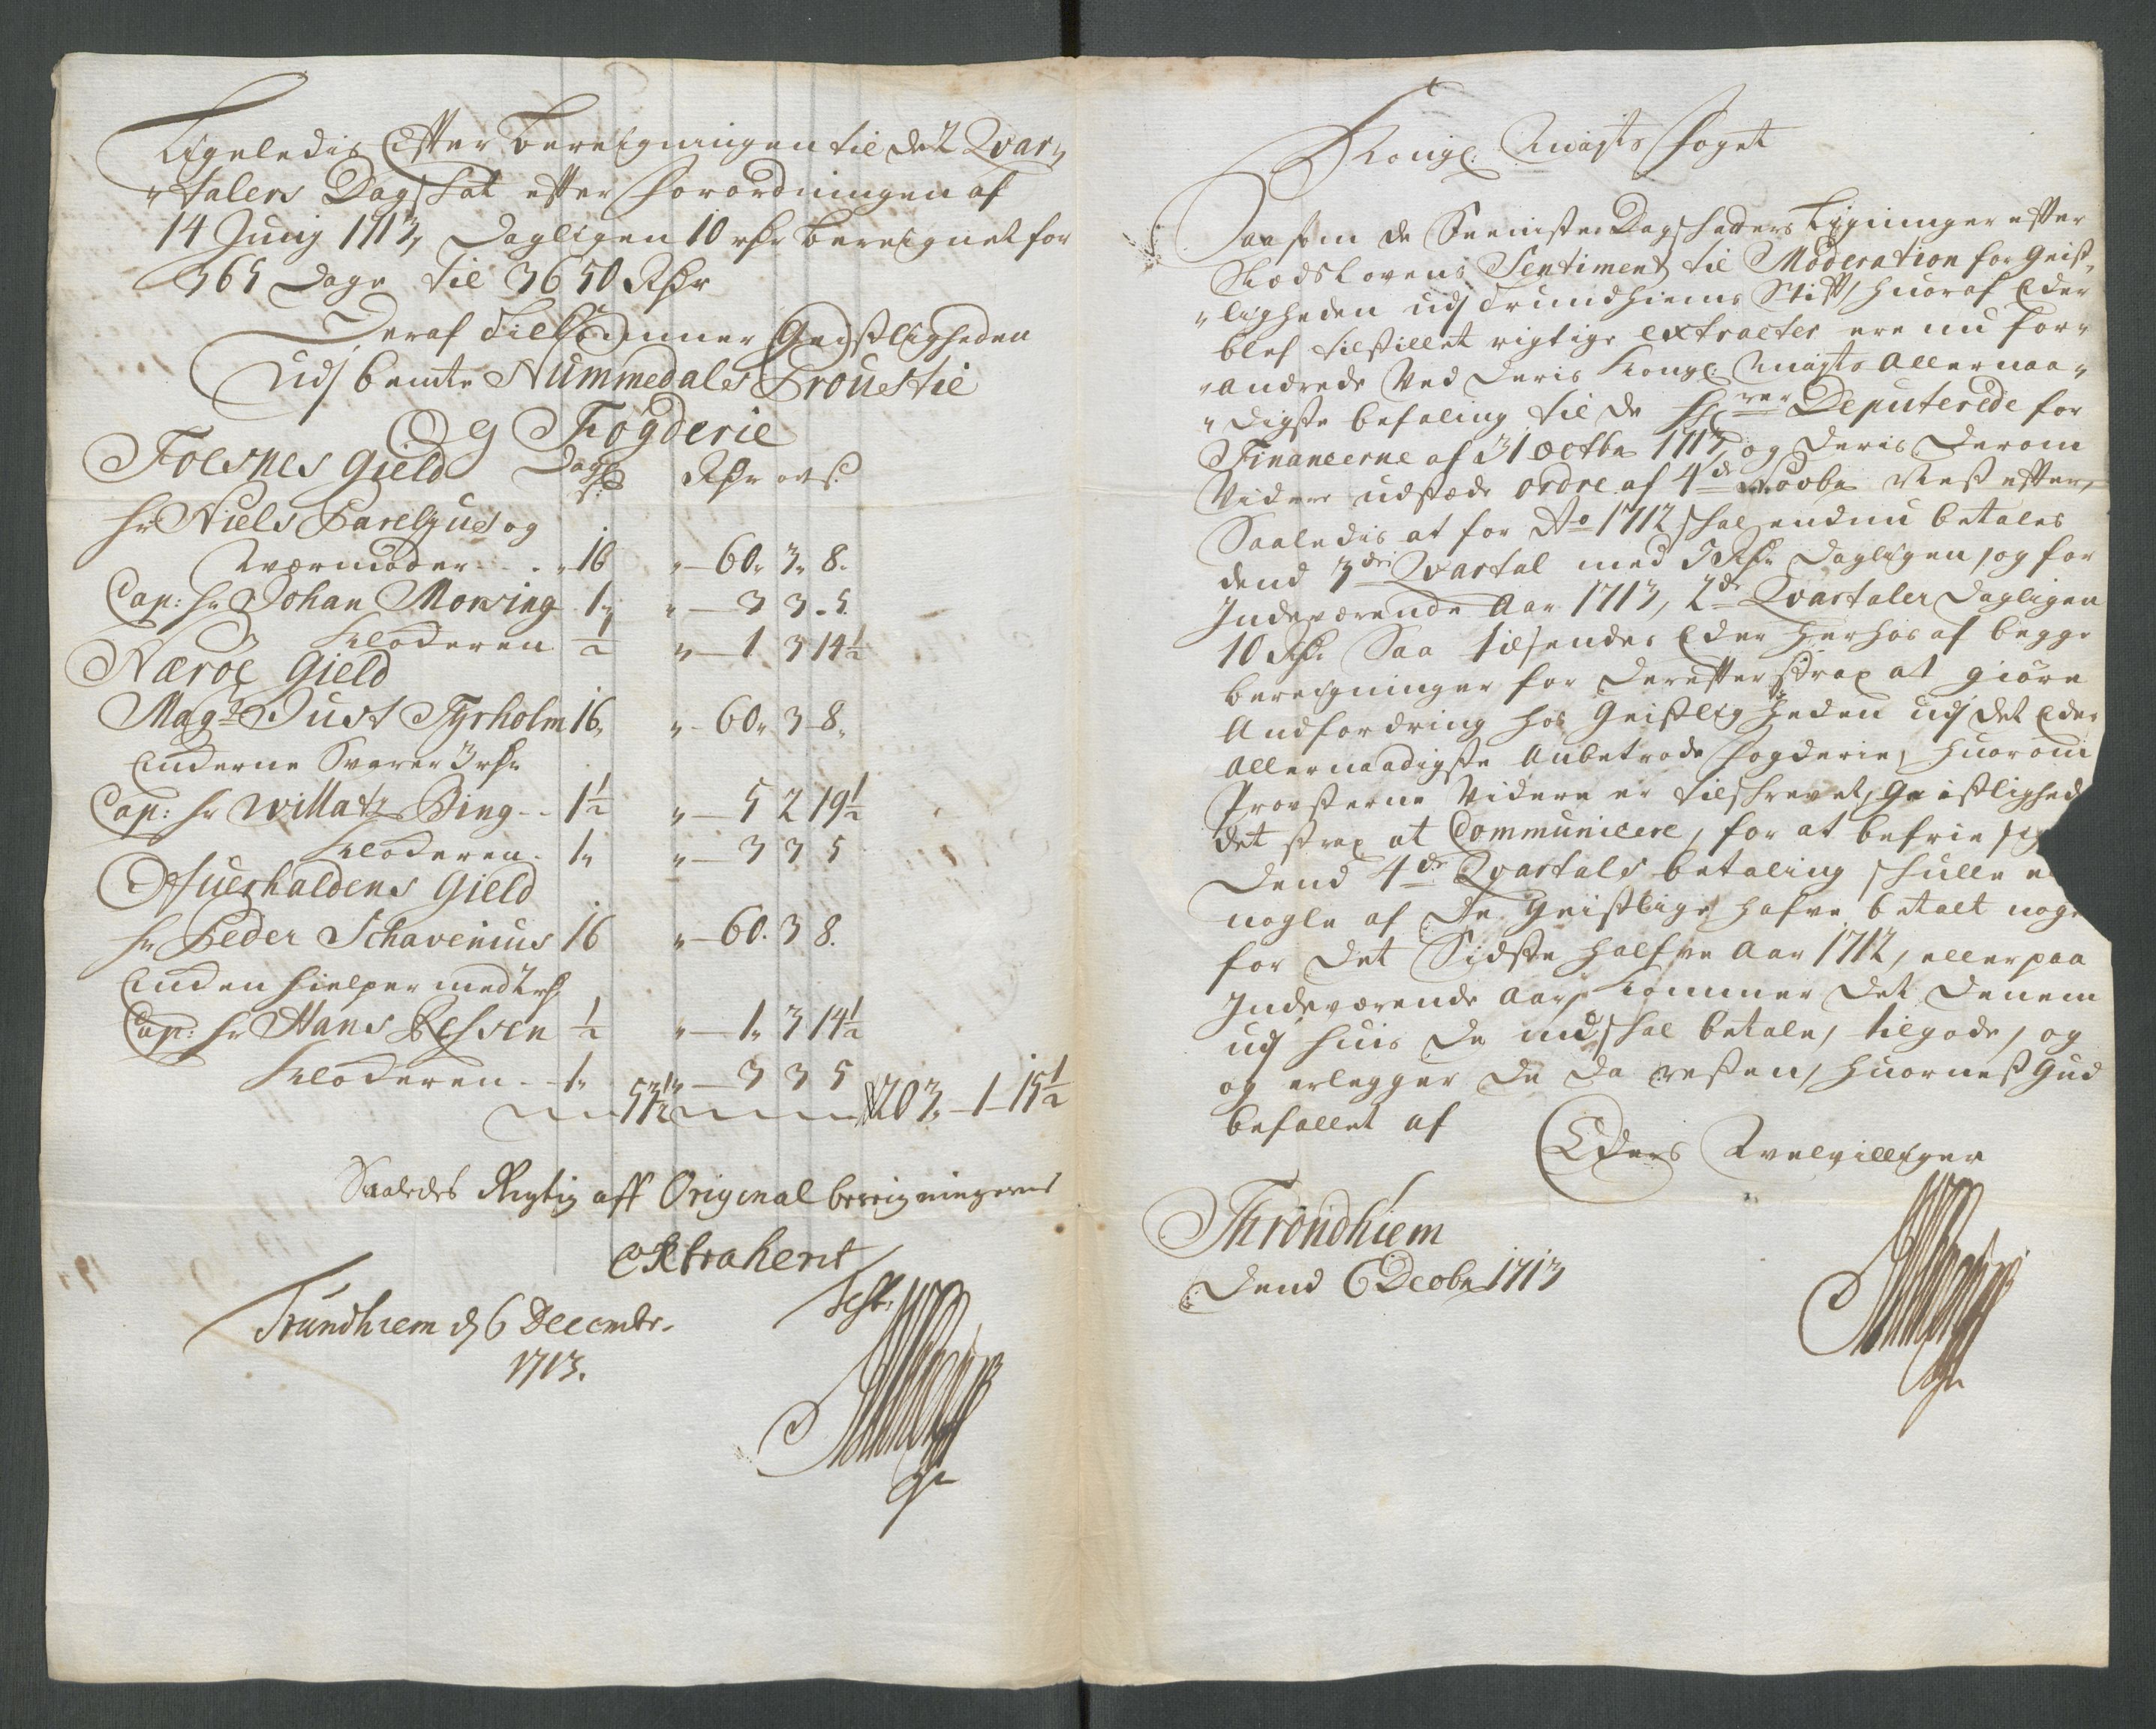 Ligeledis Efter bereigningen til det 2 Qvar,,
,,talers Dagskat efter forordningen af
14 Junij 1713, dagligen 10 rdr bereignet for
365 dage til 3650 Rdr
Deraf tilkommer Geistligheden
udj bemte Nummedals Proustie
Og Fogderie
Foesnes Gield Dagl. s. Rdr ort s.
hr Niels Parelius og
Værmoder . . . 16 " — 60. 3. 8.
Cap: hr Johan Mowing 1. " — 3 3. 5.
Kloderen ½ " — 1 3 14½
Nærøe Gield
Magr Just Tyrholm 16. " — 60. 3 - 8.
Enderne Svarer 3 rdr
Cap: hr Willatz Bing - - 1½ " — 5 2 19½
Kloderen - 1. " — 3 3 5
Ofuerhaldens Gield
hr Peder Schavenius 16 " — 60. 3 8.
Enden hielper med 2 rd
Cap: hr Hans Jessen ½ " — 1. 3 14½
Kloderen - - 1. " — 3 3 5
53½ 203. - 1 - 15½
Saaledes Rigtig aff Original bereigningerne
extraherit
Trundhiem d 6 Decembr. Test.
1713.
Kongl. Mayts foget
Saasom de Seeniste Dagskatters Ligninger efter
Stædslovens Sentiment til Moderation for Geist,,
,,ligheden udj Trundhiems Stift, huoraf Eder
blef tilstillet rigtige extracter ere nu for,,
,,andrede Ved deris Kongl. Mayts Allernaa,,
,,digste befaling til de hrrer Deputerede for
Financerne af 31 octbr 1713, og deris derom
Videre udstæde ordre af 4de Novbr nest efter,
Saaledis at for Ao 1712 skal endnu betales
dend 3die Qvartal med 5 Rdr dagligen, og for
Indeværende Aar 1713, 2de Qvartaler dagligen
10 Rdr Saa tilsendes Eder herhos af begge
bereigninger for derefter strax at giøre
Andfordring hos Geistligheden udj det Eder
Allernaadigste Anbetrode fogderie, huorom
Provsterne Videre er tilskrevet, Geistlighed
det strax at Communicere, for at befrie sig
Dend 4de Qvartals betaling skulle
nogle af de Geistlige hafve betalt noge
for det Sidste halfve Aar 1712, eller paa
Indeværende Aar, kommer det denem
udj huis de nu skal betale, tilgode, og
og erlegger de da resten, huornest Gud
befallet af
Eders Velvilliger
Throndhiem
Dend 6 Decbr 1713